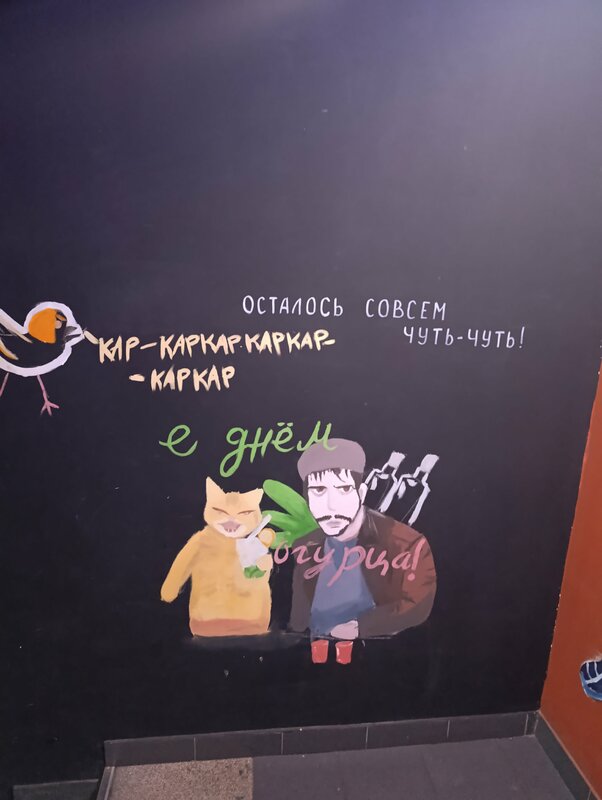 ОСТАЛОСЬ СОВСЕМ
ЧУТЬ-ЧУТЬ!
КАР-КАРКАР.КАРКАР-
-КАРКАР
С днём
огурца!